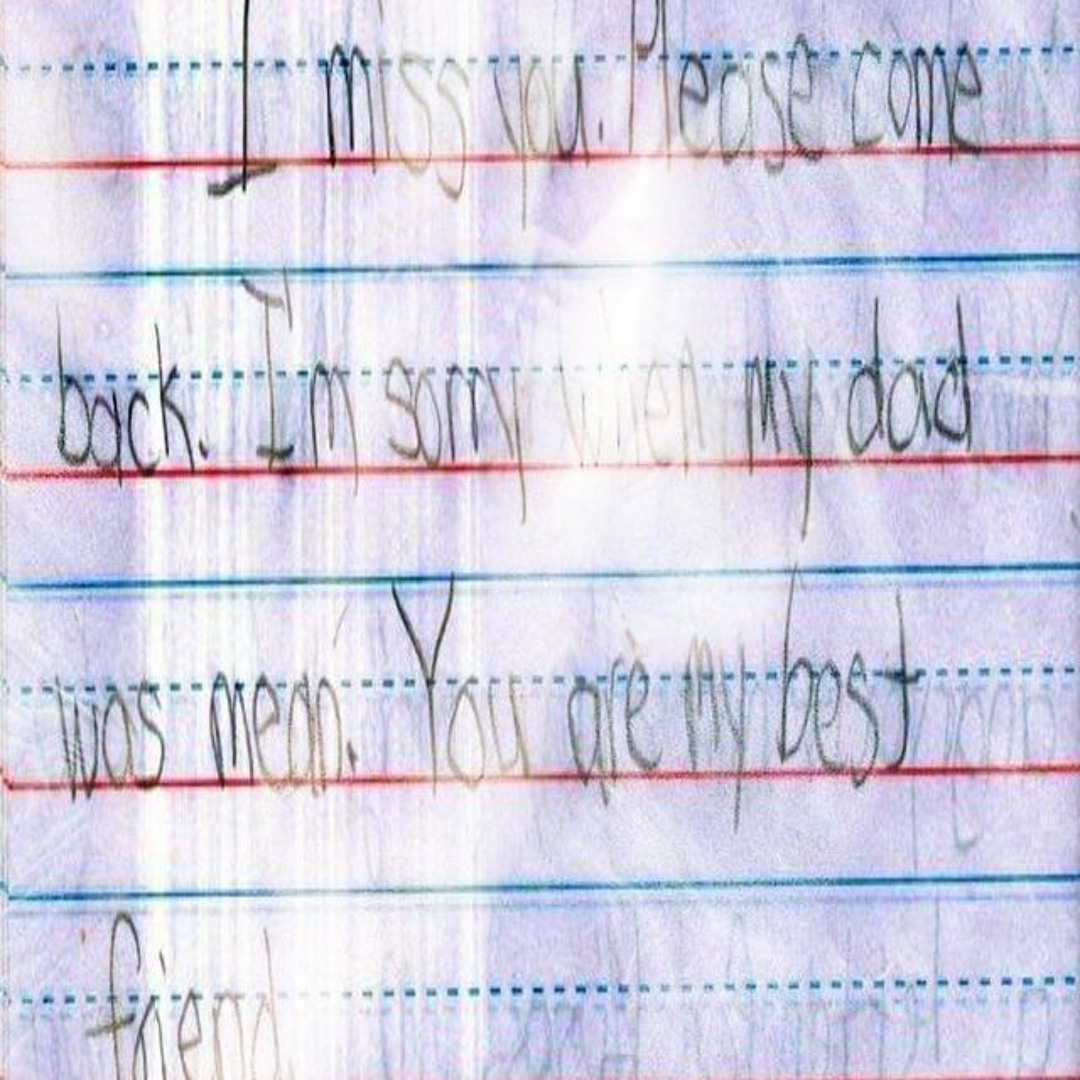 I miss you. Please come
back. I'm sorry when my dad
was mean. You are my best
friend.